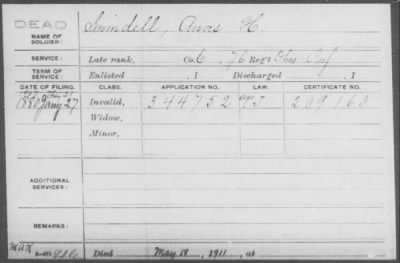 DEAD
NAME OF SOLDIER:
Swindell, Amos H.
SERVICE:
Late rank, Co. C, 76 Reg't Ohio Inf
TERM OF SERVICE:
Enlisted , 1 Discharged , 1
DATE OF FILING. CLASS. APPLICATION NO. LAW. CERTIFICATE NO.
1880 Jany 27 Invalid, 344752 209160
Widow,
Minor,
ADDITIONAL SERVICES:
REMARKS:
Died May 18, 1911, at